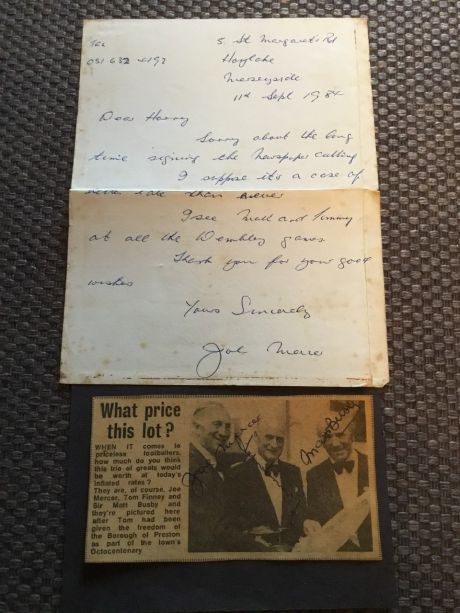 Tel
051 632 4197
5 St Margaret's Rd
Hoylake
Merseyside
11th Sept 1984
Dear Harry
Sorry about the long
time signing the Newspaper cutting
I suppose it's a case of
better late than never
I see Matt and Tommy
at all the Wembley games
Thank you for your good
wishes
Yours Sincerely
Joe Mercer
What price
this lot?
WHEN IT comes to
priceless footballers,
how much do you think
this trio of greats would
be worth at today's
inflated rates?
They are, of course, Joe
Mercer, Tom Finney and
Sir Matt Busby and
they're pictured here
after Tom had been
given the freedom of
the Borough of Preston
as part of the town's
Octocentenary
Joe Mercer
Matt Busby